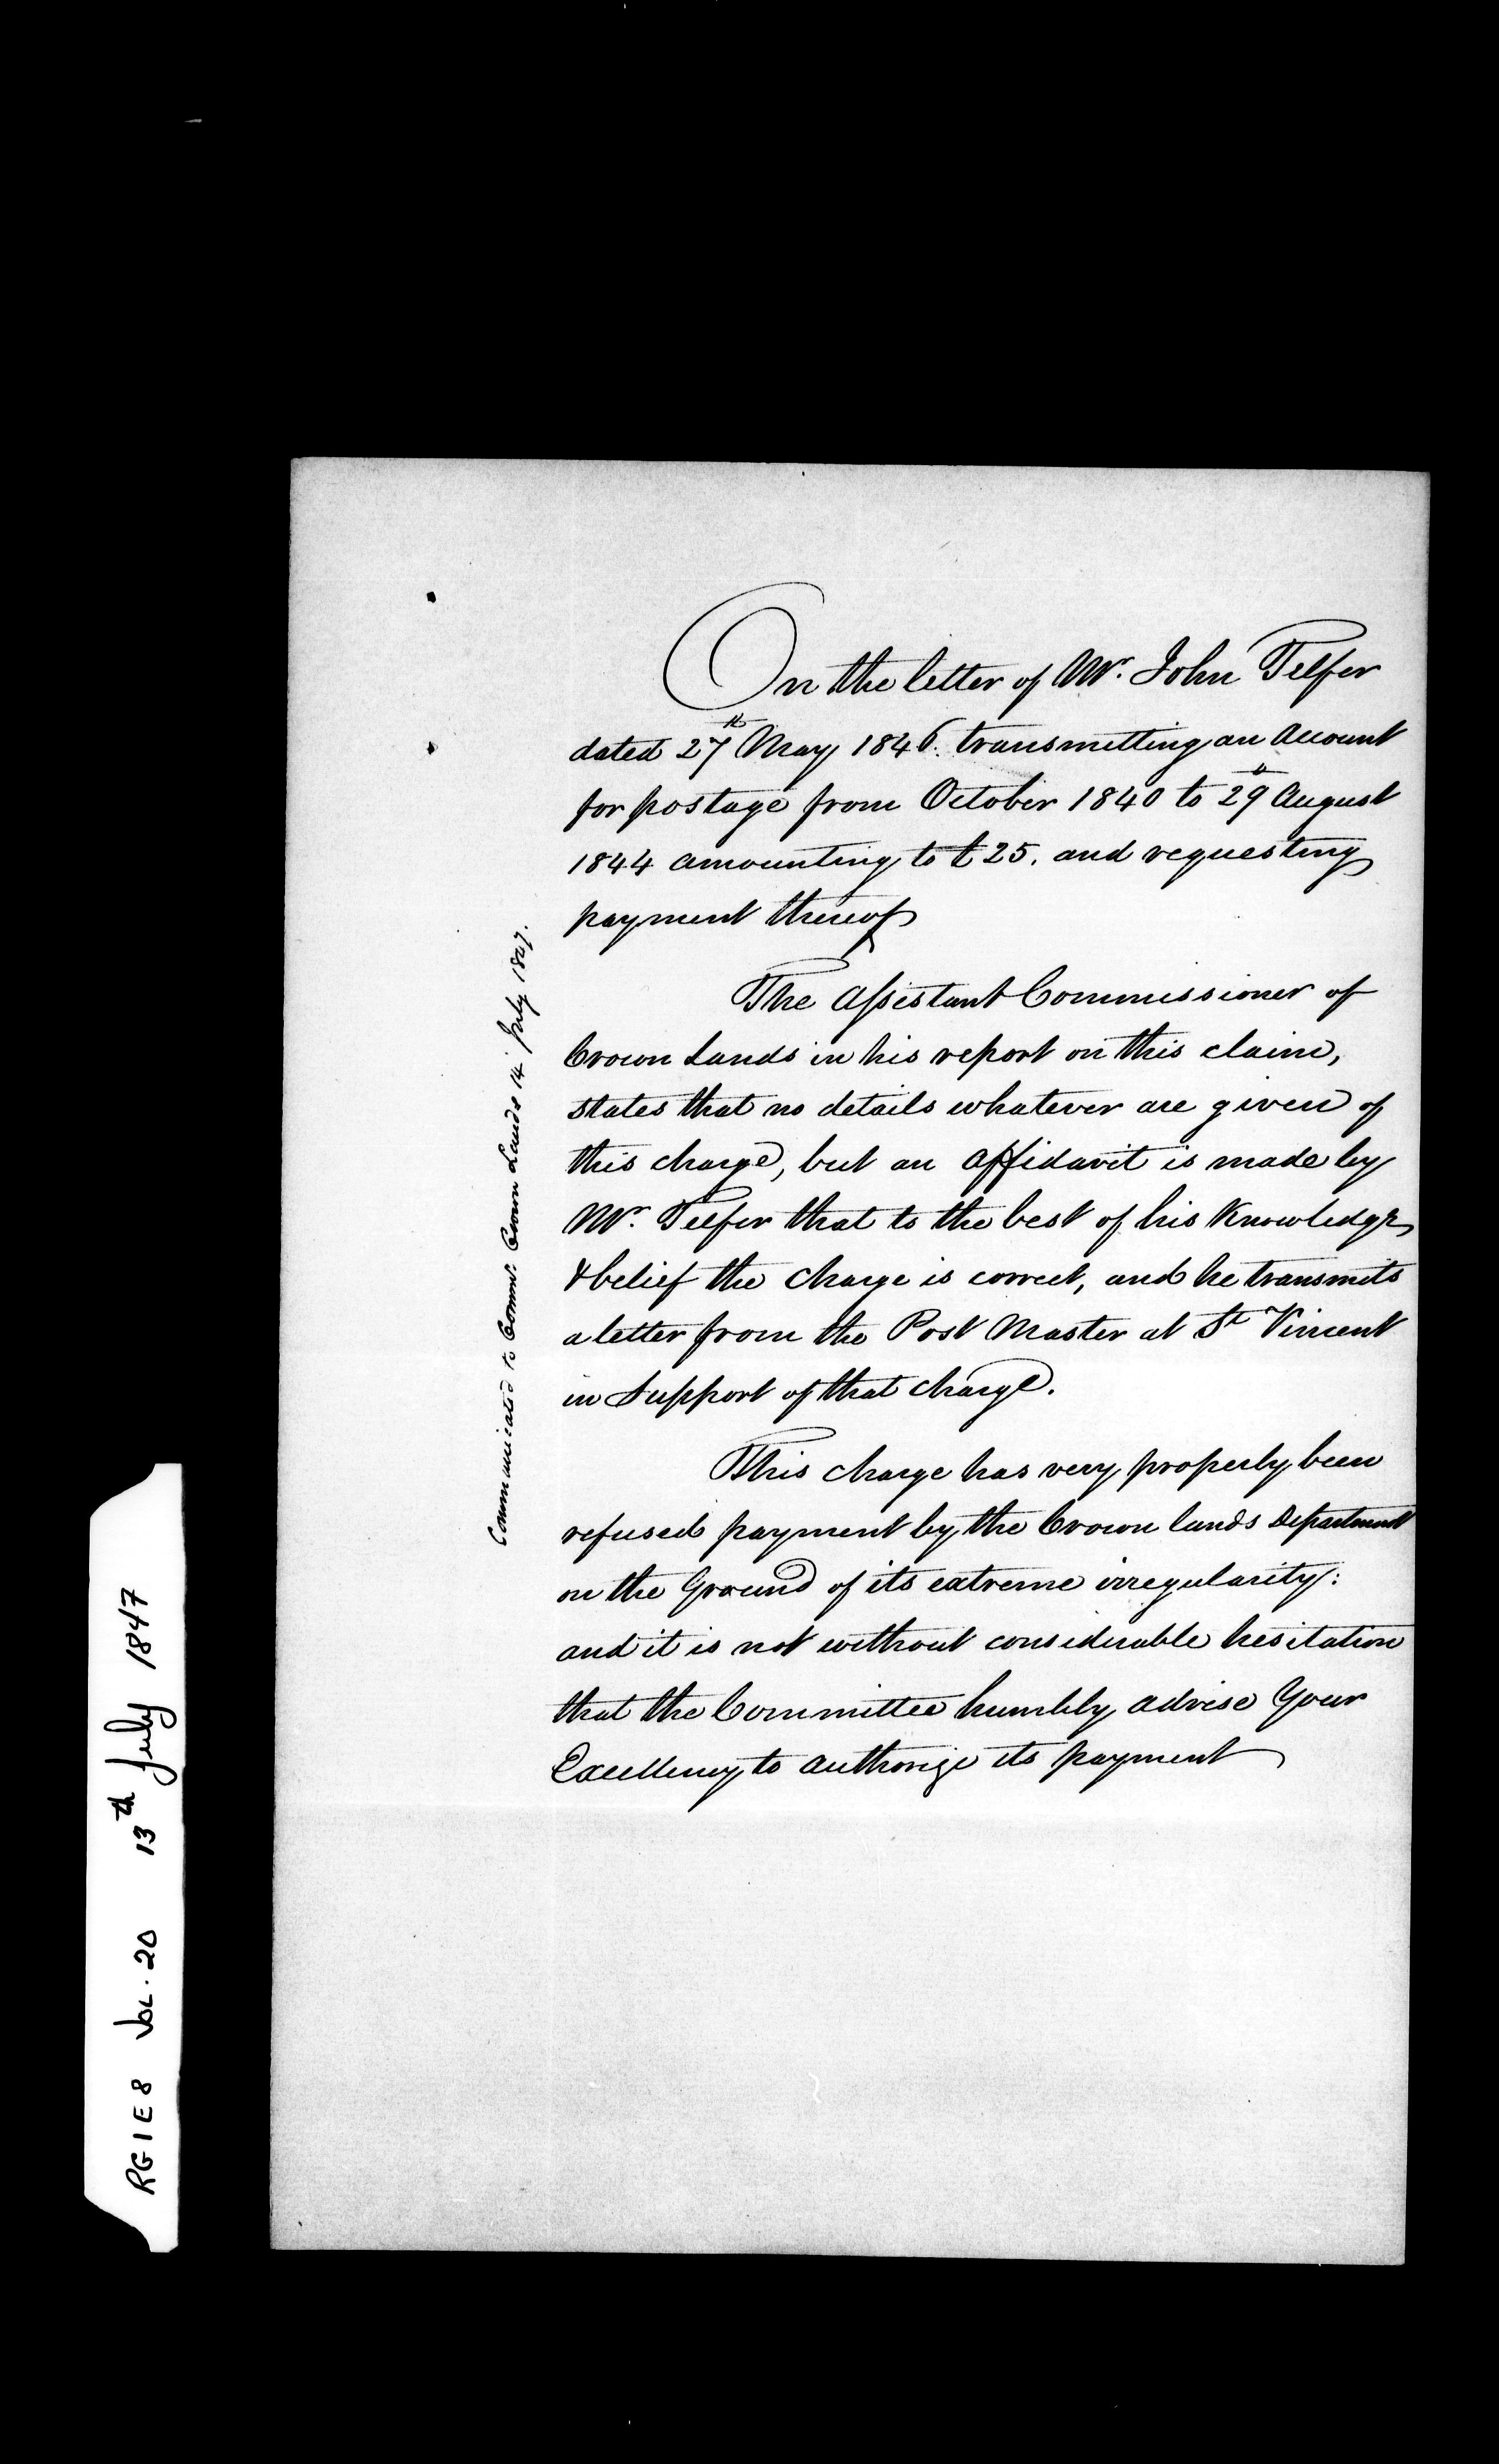 On the letter of Mr. John Telfer
dated 27th May 1846. transmitting an Account
for postage from October 1840 to 29th August
1844 amounting to £25. and requesting
payment thereof
The Assistant Commissioner of
Crown Lands in his report on this claim,
states that no details whatever are given of
this charge, but an affidavit is made by
Mr. Telfer that to the best of his Knowledge
& belief the charge is correct, and he transmits
a letter from the Post Master at St Vincent
in Support of that charge.
This charge has very properly been
refused payment by the Crown lands Department
on the Ground of its extreme irregularity:
and it is not without considerable hesitation
that the Committee humbly advise Your
Excellency to authorize its payment
Communicated to Commr. Crown Lands 14 July 1847.
RG 1 E 8 VOL. 20 13th July 1847